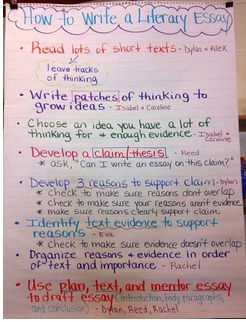 How to Write a Literary Essay
• Read lots of short texts - Dylan + Alex
leave tracks
of thinking
• Write patches of thinking to
grow ideas - Isabel + Caroline
• Choose an idea you have a lot of
thinking for + enough evidence. - Isabel +
Caroline
• Develop a claim/thesis - Reed
* ask, "Can I write an essay on this claim?"
• Develop 3 reasons to support claim - Dylan
* Check to make sure reasons don't overlap
* check to make sure your reasons aren't evidence
* make sure reasons clearly support claim
• Identify text evidence to support
reasons - Eva
* check to make sure evidence doesn't overlap
• Organize reasons + evidence in order
of text and importance - Rachel
• Use plan, text, and mentor essay
to draft essay (introduction, body paragraphs,
and conclusion) - Dylan, Reed, Rachel